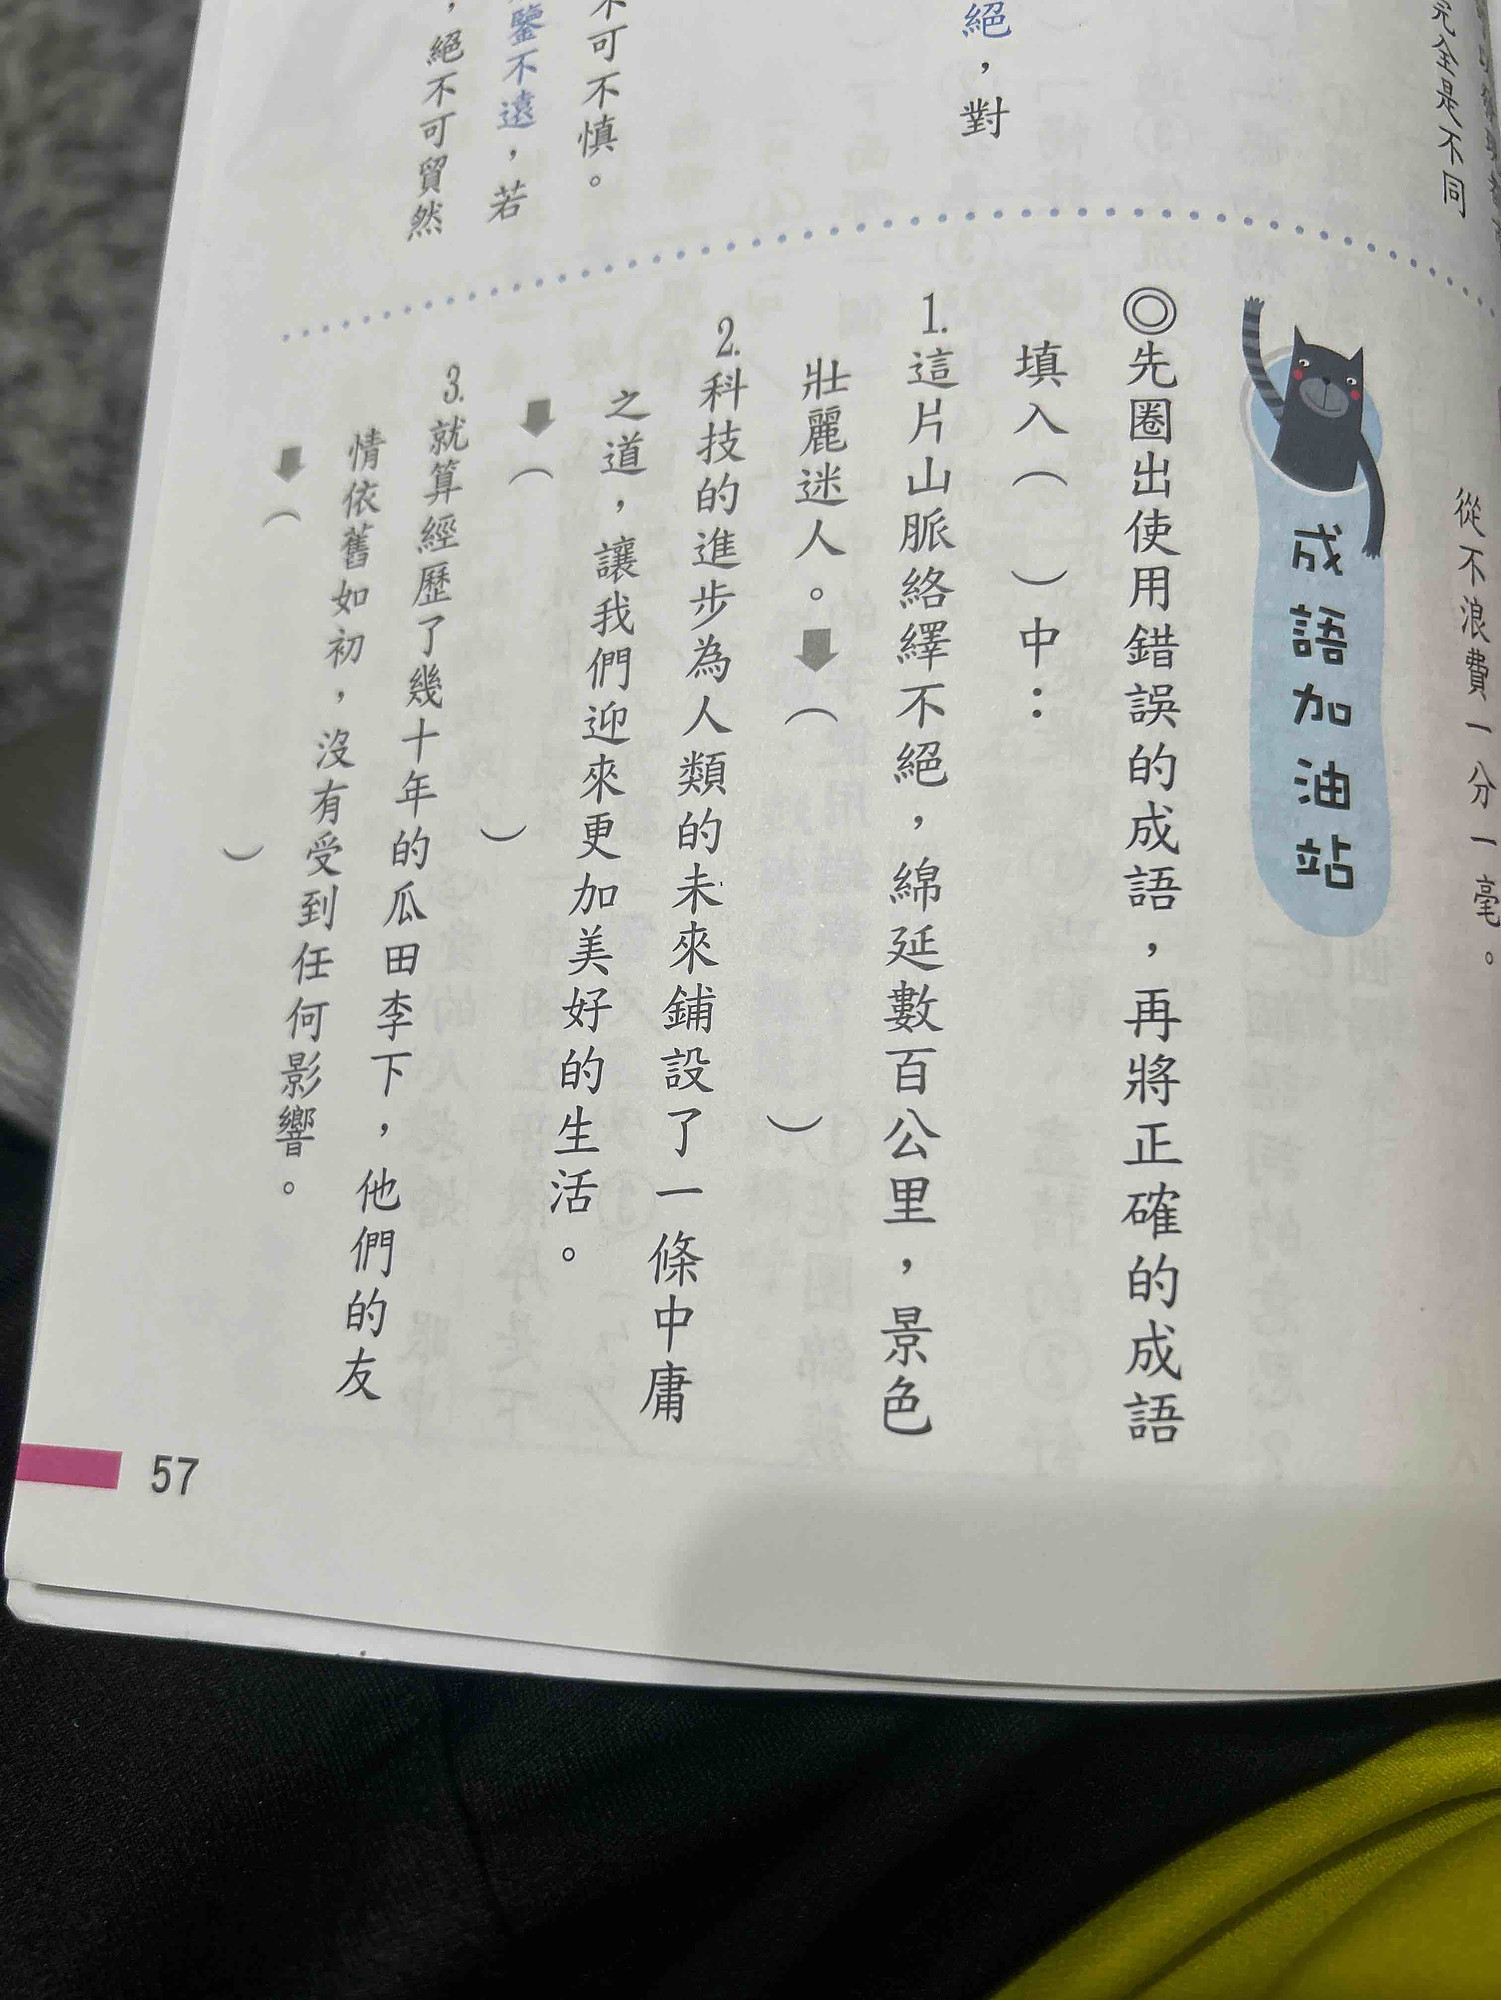 完全是不同
從不浪費一分一毫。
絕，對
不可不慎。
鑒不遠，若
，絕不可貿然
成語加油站
◎先圈出使用錯誤的成語，再將正確的成語
填入（　）中：
1.這片山脈絡繹不絕，綿延數百公里，景色
壯麗迷人。⬇（　）
2.科技的進步為人類的未來鋪設了一條中庸
之道，讓我們迎來更加美好的生活。
⬇（　）
3.就算經歷了幾十年的瓜田李下，他們的友
情依舊如初，沒有受到任何影響。
⬇（　）
57